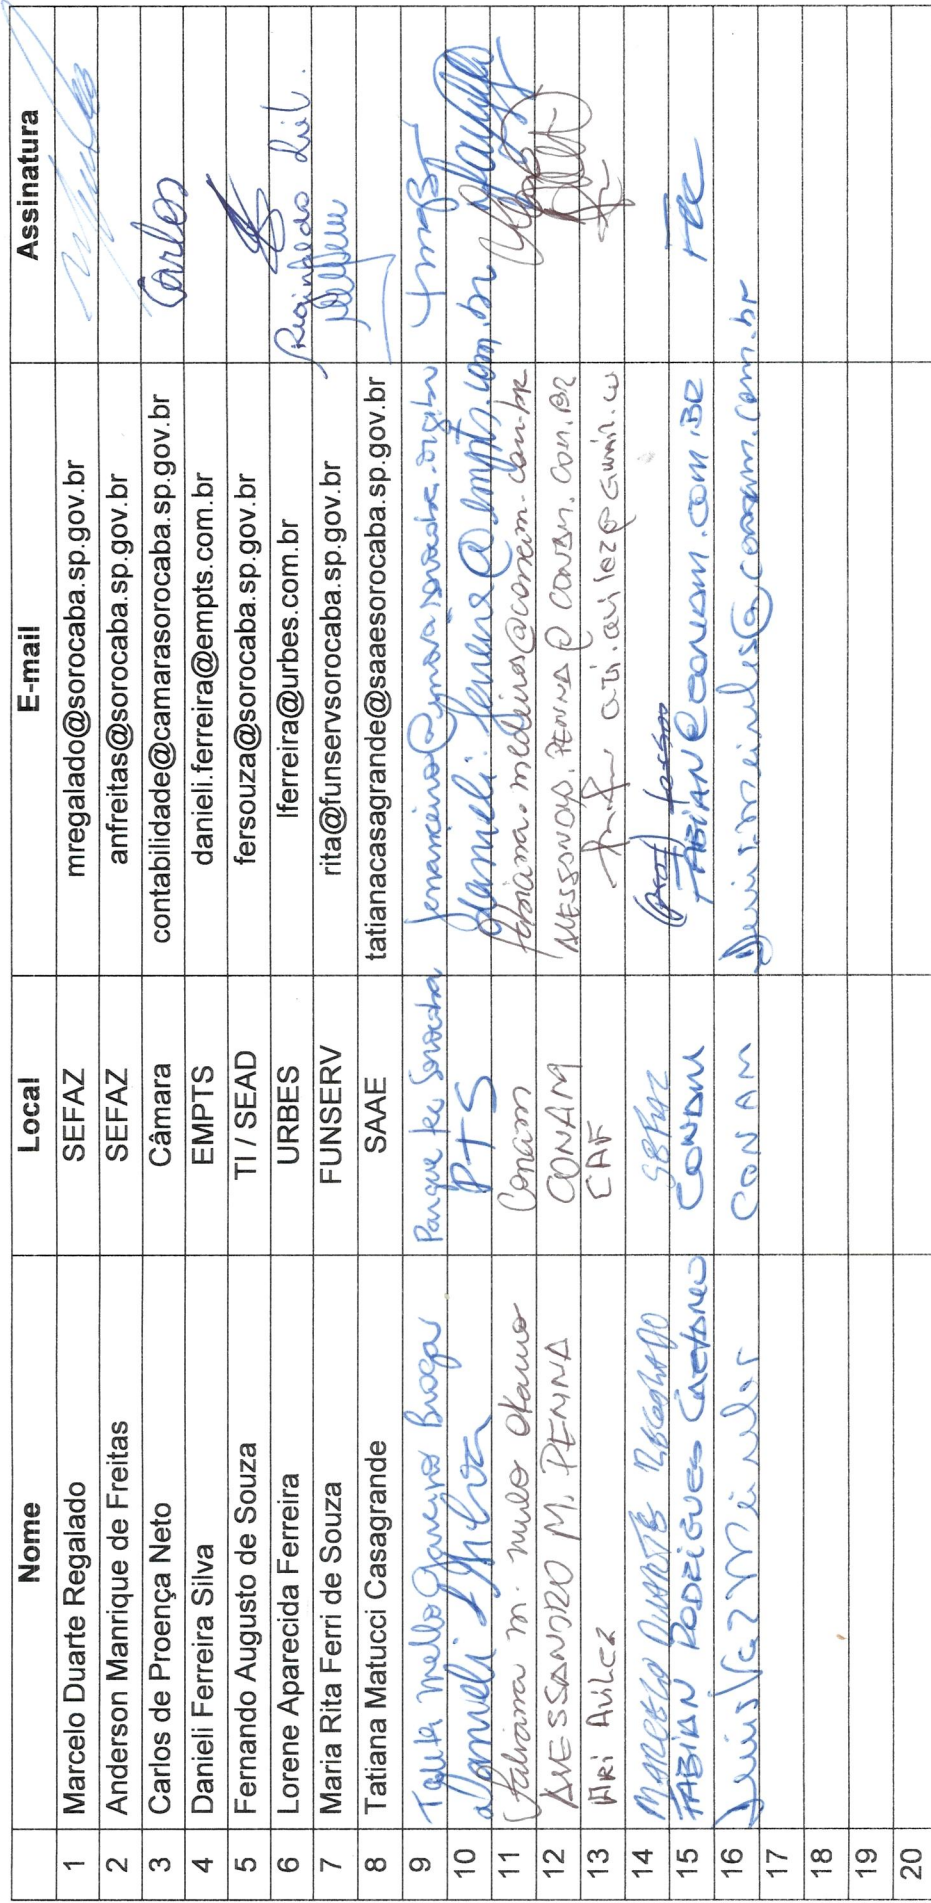 Nome Local E-mail Assinatura
1 Marcelo Duarte Regalado SEFAZ mregalado@sorocaba.sp.gov.br
2 Anderson Manrique de Freitas SEFAZ anfreitas@sorocaba.sp.gov.br
3 Carlos de Proença Neto Câmara contabilidade@camarasorocaba.sp.gov.br Carlos
4 Danieli Ferreira Silva EMPTS danieli.ferreira@empts.com.br
5 Fernando Augusto de Souza TI / SEAD fersouza@sorocaba.sp.gov.br
6 Lorene Aparecida Ferreira URBES lferreira@urbes.com.br Reginaldo
7 Maria Rita Ferri de Souza FUNSERV rita@funservsorocaba.sp.gov.br
8 Tatiana Matucci Casagrande SAAE tatianacasagrande@saaesorocaba.sp.gov.br
9 Mello Braga Parque
10 Danieli F Silva PTS danieli.ferreira@empts.com.br
11 Fabiana m. Okamo Conam fabiana.medeiros@conam.com.br
12 ALESSANDRO M. PENNA CONAM ALESSANDRO.PENNA@CONAM.COM.BR
13 ARI AVILEZ CAF
14 MARCELO DUARTE REGALADO SEFAZ
15 FABIAN RODRIGUES CAETANO CONAM FABIAN@CONAM.COM.BR
16 CONAM @conam.com.br
17
18
19
20